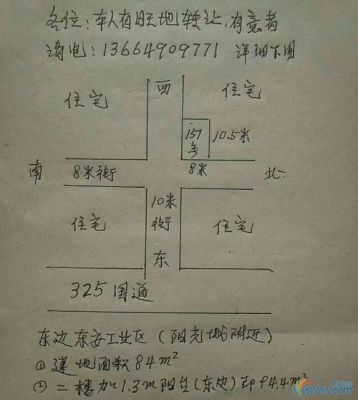 各位:本人有旺地轉让,有意者
請电:13664909771 详细下图
住宅
西
住宅
157号
10.5米
南
8米街
8米
北
住宅
10米街
住宅
东
325国道
东边东安工业区(阳光城附近)
①建地面积84m²
②二楼加1.3m阳台(东边)即94.4m²